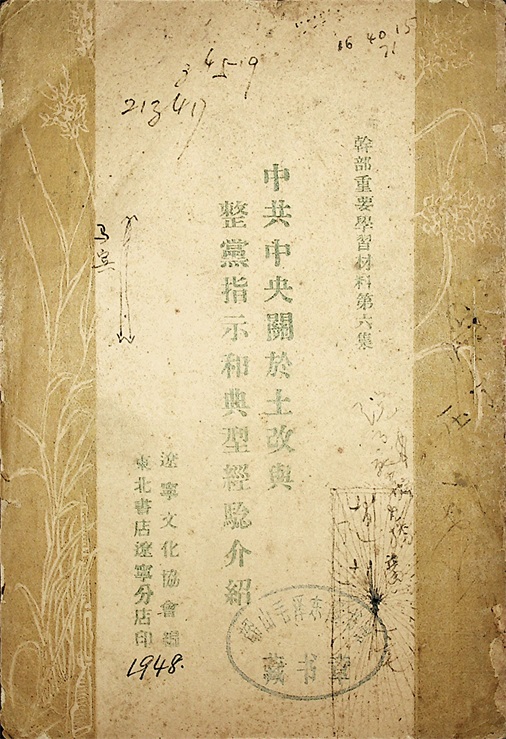 幹部重要學習材料第六集
中共中央關於土改與
整黨指示和典型經驗介紹
遼寧文化協會編
東北書店遼寧分店印
1948.
16 40 15
71
3 4519
213417
藏书章